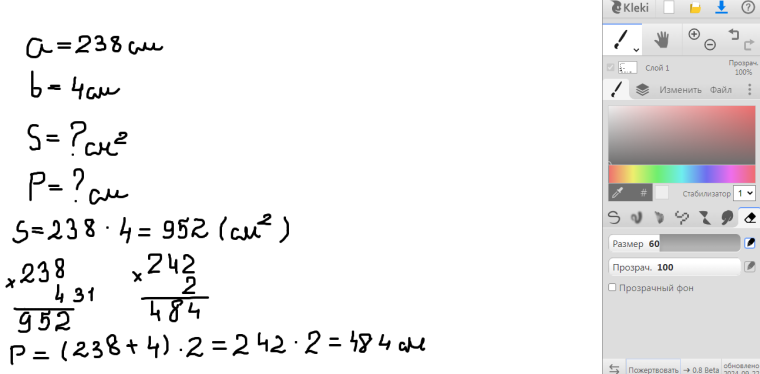 a = 238 см
b = 4 см
S = ? см²
P = ? см
S = 238 · 4 = 952 (см²)
× 238
4 31
952
× 242
2
484
P = (238 + 4) · 2 = 242 · 2 = 484 см
Kleki
Слой 1
Прозрач.
100%
Изменить Файл
#
Стабилизатор 1
Размер 60
Прозрач. 100
Прозрачный фон
Пожертвовать → 0.8 Beta
обновлено